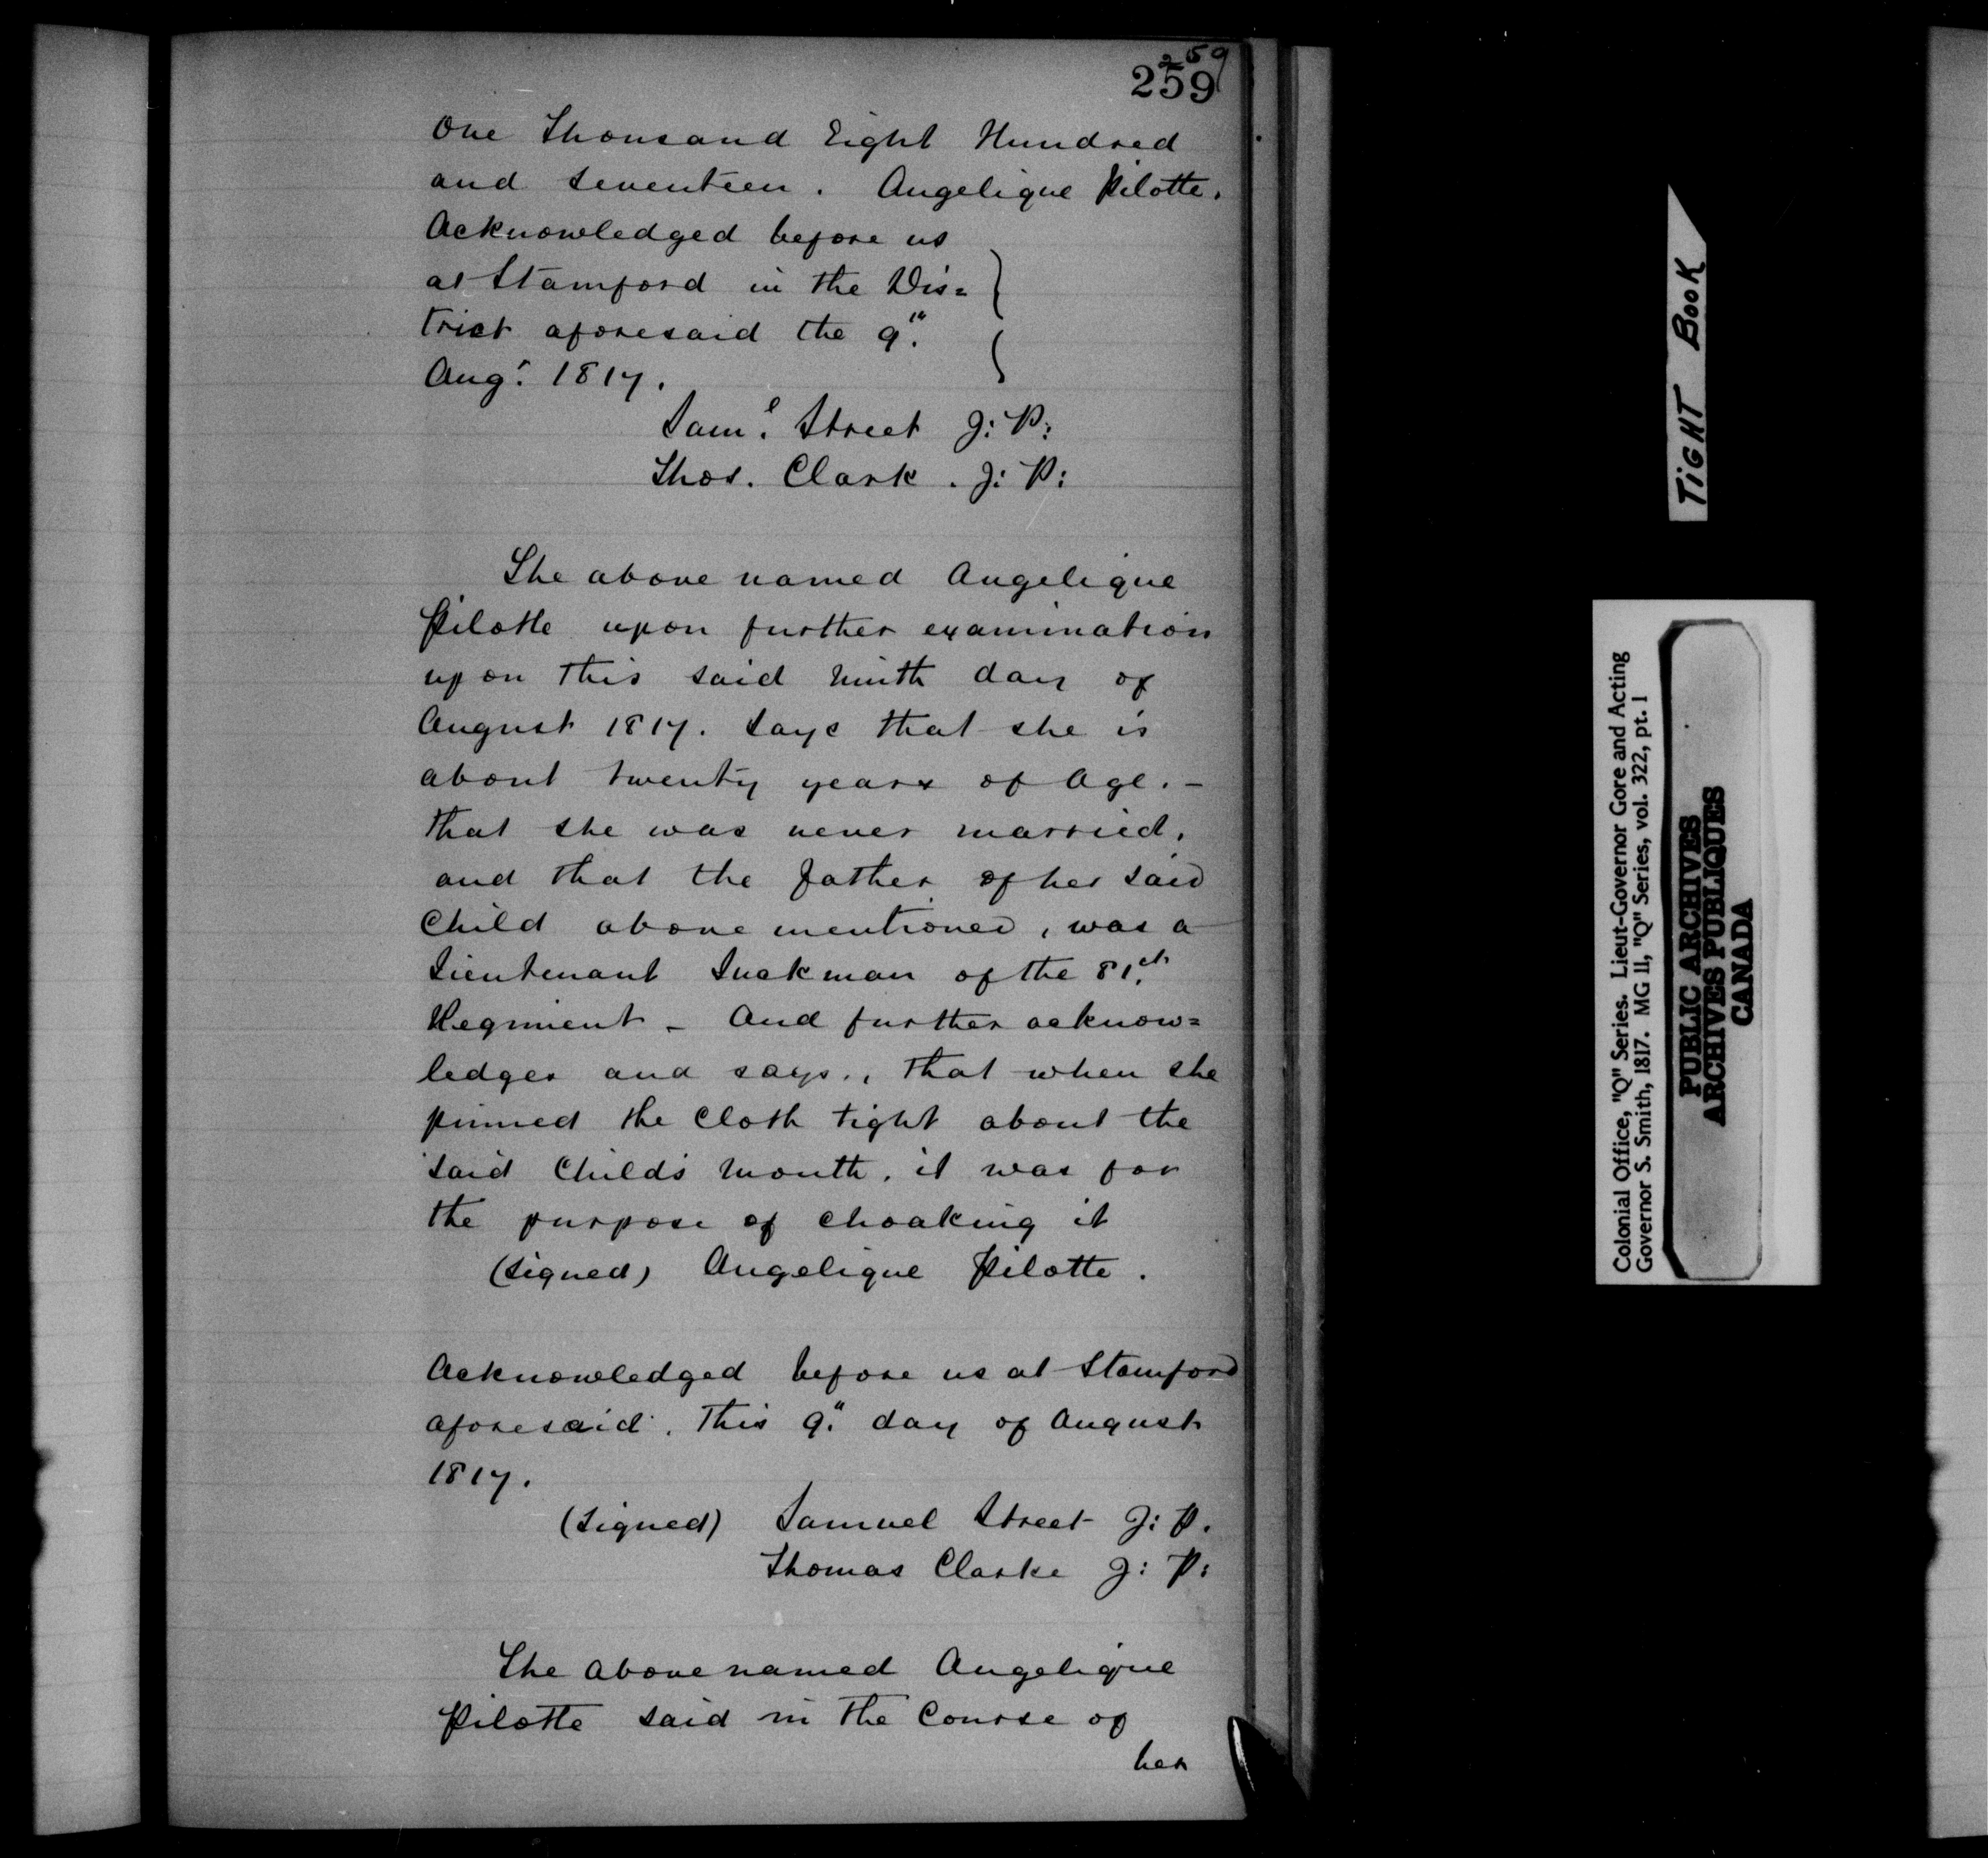 259
259
One Thousand Eight Hundred
and seventeen. Angelique Pilotte.
Acknowledged before us
at Stamford in the Dis=
trict aforesaid the 9."
Augt. 1817.
Saml. Street J: P:
Thos. Clark. J: P:
The above named Angelique
Pilotte upon further examination
upon this said ninth day of
August 1817. Says that she is
about twenty years of Age. -
that she was never married,
and that the father of her said
Child above mentioned, was a
Lieutenant Luckman of the 81st.
Regiment - And further acknow=
ledges and says., that when she
pinned the Cloth tight about the
said Child's mouth, it was for
the purpose of choaking it
(Signed) Angelique Pilotte.
Acknowledged before us at Stamford
aforesaid. This 9." day of August
1817.
(Signed) Samuel Street J: P.
Thomas Clarke J: P:
The above named Angelique
Pilotte said in the Course of
her
TiGHT BooK
Colonial Office, "Q" Series. Lieut-Governor Gore and Acting
Governor S. Smith, 1817. MG 11, "Q" Series, vol. 322, pt. 1
PUBLIC ARCHIVES
ARCHIVES PUBLIQUES
CANADA